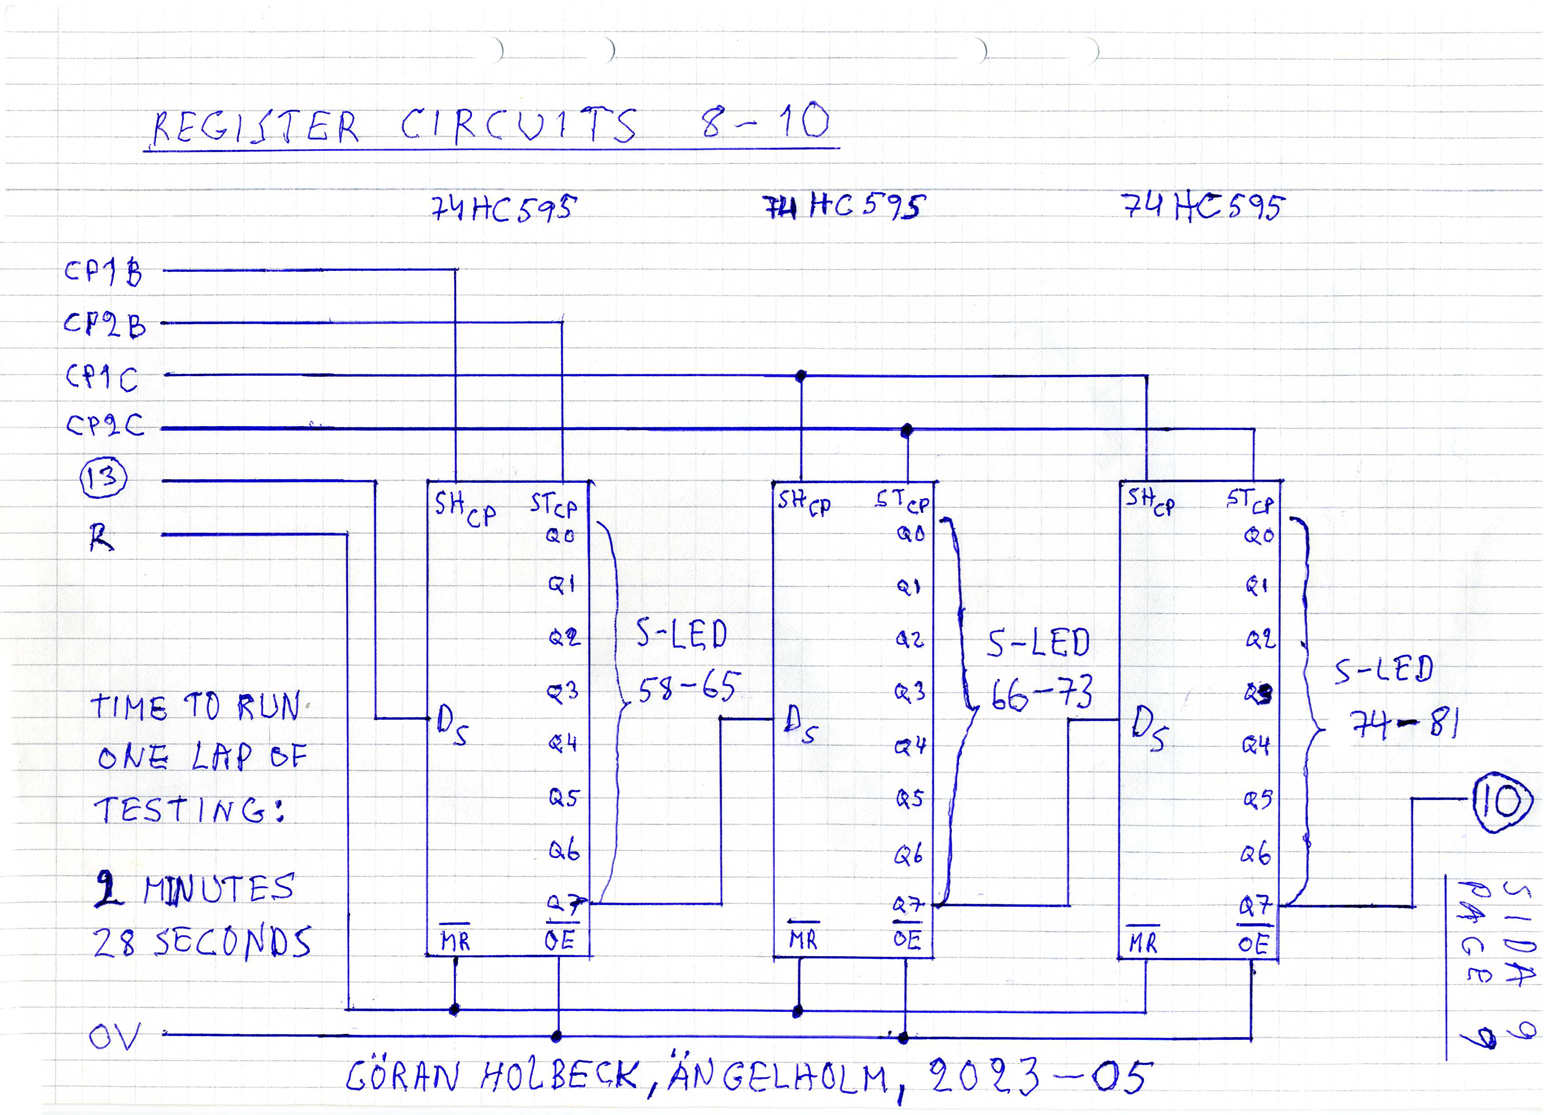 REGISTER CIRCUITS 8-10
74HC595 74HC595 74HC595
CP1B
CP2B
CP1C
CP2C
13
R
SHCP STCP
Q0
Q1
Q2
Q3
DS
Q4
Q5
Q6
Q7
MR OE
S-LED
58-65
SHCP STCP
Q0
Q1
Q2
Q3
DS
Q4
Q5
Q6
Q7
MR OE
S-LED
66-73
SHCP STCP
Q0
Q1
Q2
Q3
DS
Q4
Q5
Q6
Q7
MR OE
S-LED
74-81
10
TIME TO RUN
ONE LAP OF
TESTING:
2 MINUTES
28 SECONDS
0V
SIDA 9
PAGE 9
GÖRAN HOLBECK, ÄNGELHOLM, 2023-05